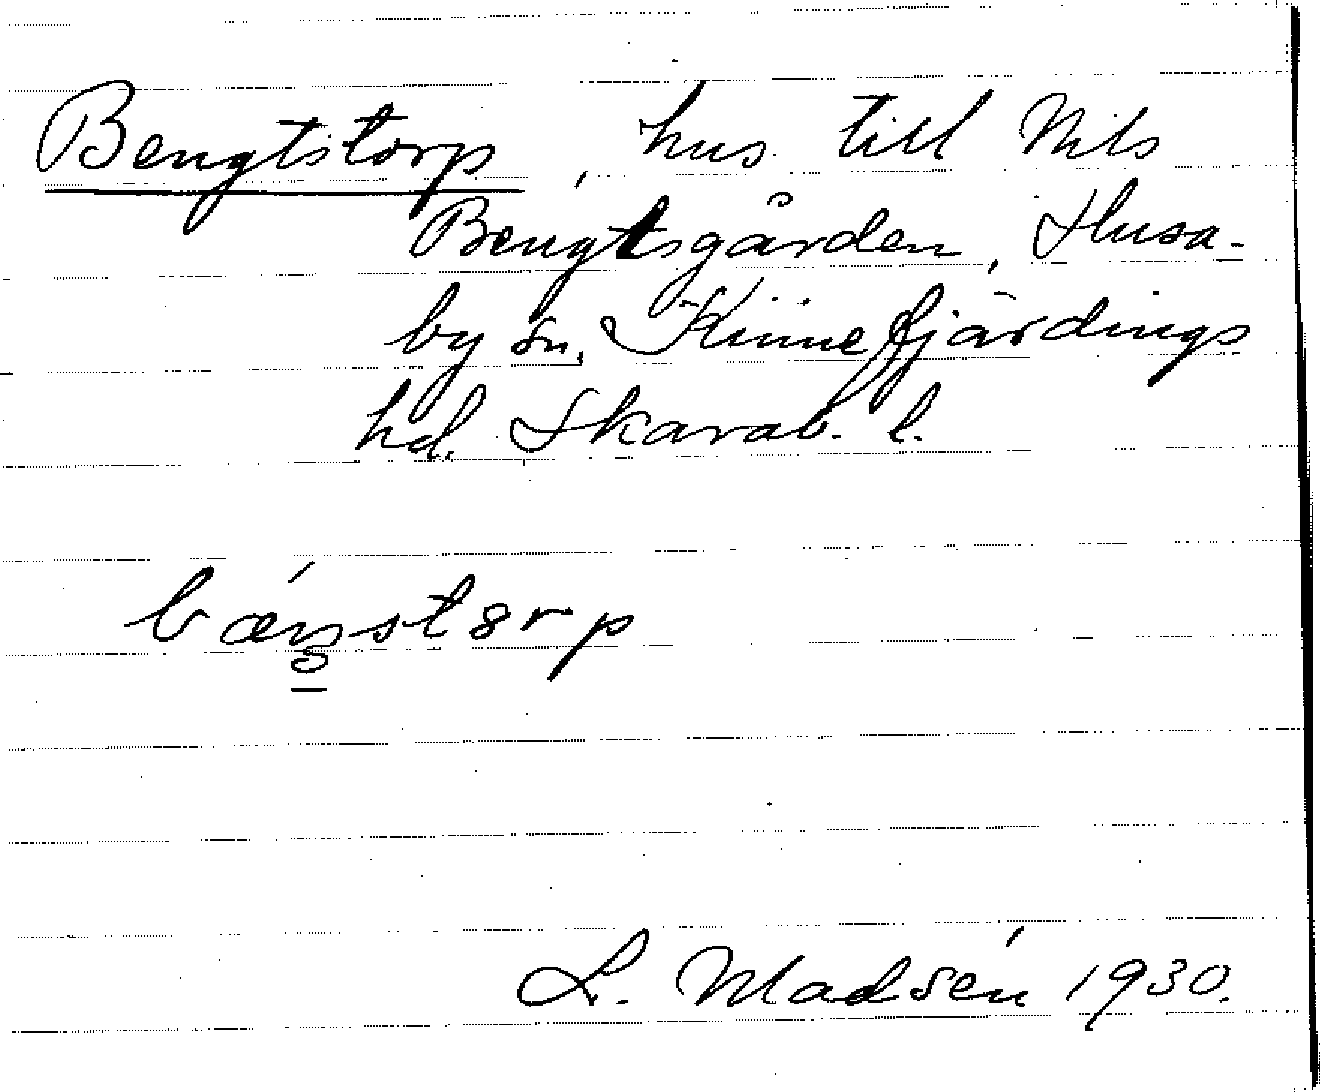 Bengtstorp, hus till Nils
Bengtsgården, Husa-
by sn, Kinnefjärdings
hd. Skarab. l.
bǽŋstɷrp
L. Madsén 1930.